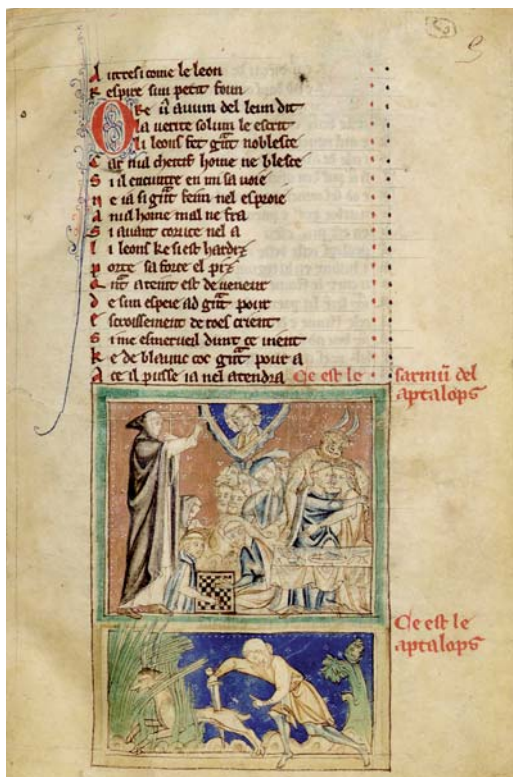 A utresi come le leon
R espire sun petit foun
O re ū avum del leun dit
La verite solum le escrit
Li leons fet gūt noblesce
C ar nul chetif home ne blesce
S i il encuntre en mi sa voie
N e ia si gūt feim nel espoie
A nul home mal ne fra
S i avant coruce nel a
L i leons ke si est hardiz
P orte sa force el piz
Q ūt atent est de veneur
D e sun espeie ad gūt pour
L escroissement de roes crient
S i me esmerveil dunt ce vient
K e de blaunc coc gūt pour a
A ce il pusse ia nel atendra Ce est le sarmū del
aptalops
Ce est le
aptalops